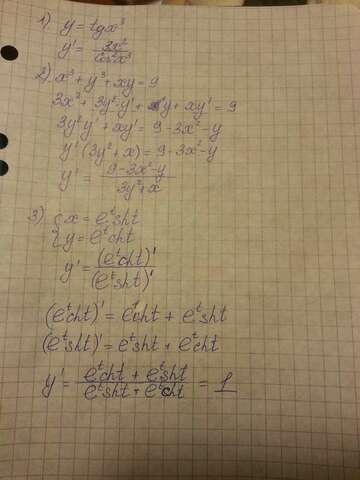 1) y = tgx³
y' = 3x²/cos²x³
2) x³ + y³ + xy = 9
3x² + 3y²·y' + y + xy' = 9
3y²y' + xy' = 9 - 3x² - y
y'(3y² + x) = 9 - 3x² - y
y' = (9 - 3x² - y)/(3y² + x)
3) { x = eᵗsht
{ y = eᵗcht
y' = (eᵗcht)'/(eᵗsht)'
(eᵗcht)' = eᵗcht + eᵗsht
(eᵗsht)' = eᵗsht + eᵗcht
y' = (eᵗcht + eᵗsht)/(eᵗsht + eᵗcht) = 1